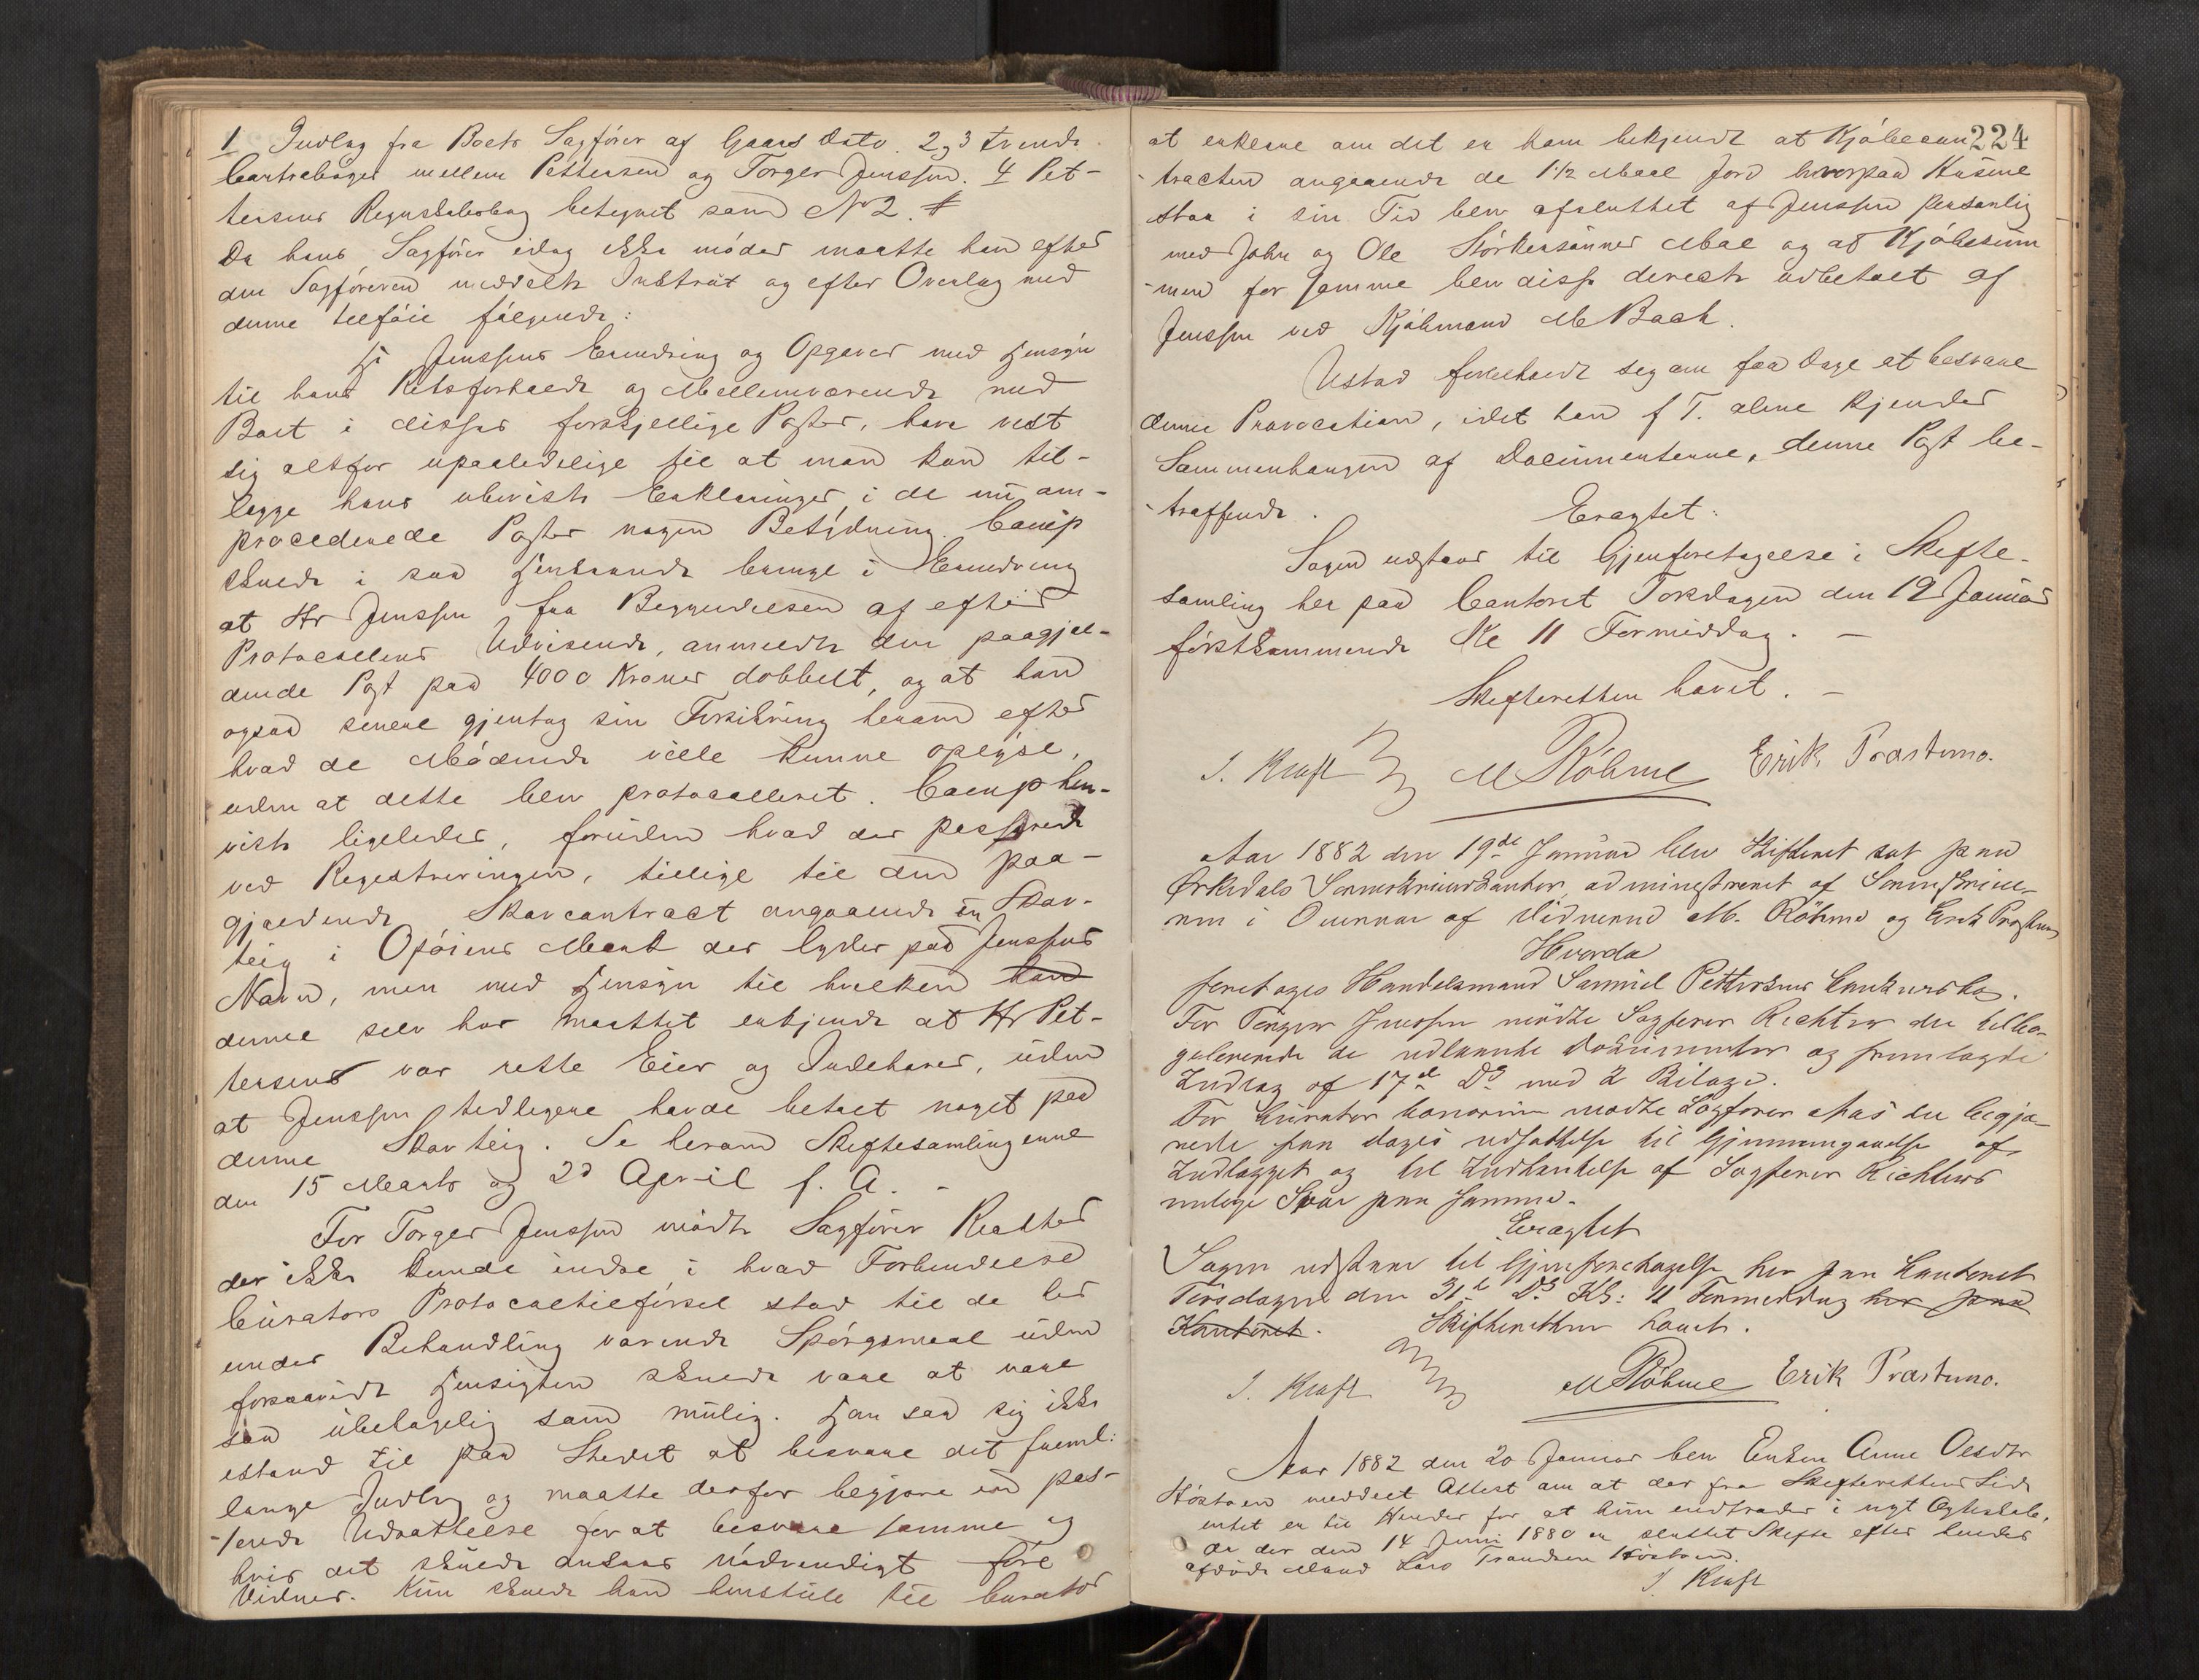 1 Indlæg fra Boets Sagfører af Gaars Dato. 2, 3 tvende
Contrabøger mellem Pettersen og Torger Jenssen. 4 Pet-
tersens Regnskabsbog betegnet som No 2.
Da hans Sagfører idag ikke møder maatte han efter
den Sagføreren meddelte Instrux og efter Overlæg med
denne tilføie følgende:
Hr Jenssens Erindring og Opgaver med Hensyn
til hans Retsforhold og Mellemværende med
Boet i disses forskjellige Poster, have vist
sig altfor upaalidelige til at man kan til-
lægge hans ubeviste Erklæringer i de nu om-
procederede Poster nogen Betydning. Comp
skulde i saa Henseende bringe i Erindring
at Hr Jenssen fra Begyndelsen af efter
Protocollens Udvisende, anmeldte den paagjæl-
dende Post paa 4000 Kroner dobbelt, og at han
ogsaa senere gjentog sin Forsikring herom efter
hvad de Mødende ville kunne oplyse,
uden at dette blev protocolleret. Comp hen-
viste ligeledes, foruden hvad der passerede
ved Registreringen, tillige til den paa-
gjældende Skovcontract angaaende en Skov-
teig i Opøiens Mark der lyder paa Jenssens
Navn, men med Hensyn til hvilken han
denne selv har maattet erkjende at Hr Pet-
tersens var rette Eier og Indehaver, uden
at Jenssen tidligere havde betalt noget paa
denne Skovteig. Se herom Skiftesamlingerne
den 15 Marts og 2d April f. A. -
For Torger Jenssen mødte Sagfører Richter
der ikke kunde indse i hvad Forbindelse
Curators Protocoltilførsel stod til de her
under Behandling værende Spørgsmaal uden
forsaavidt Hensigten skulde være at være
saa ubehagelig som mulig. Han saa sig ikke
istand til paa Stedet at besvare det freml:
lange Indlæg og maatte derfor begjære en pas-
sende Udsættelse for at besvare samme og
hvis det skulde ansees nødvendigt føre
Vidner. Kun skulde han henstille til Curator
224
at erklære om det er ham bekjendt at Kjøbecon-
tracten angaaende de 1 1/2 Maal Jord hvorpaa Husene
staa i sin Tid blev afsluttet af Jenssen personlig
med John og Ole Størkersønner Moe og at Kjøbesum-
men for samme blev disse directe udbetalt af
Jenssen ved Kjøbmand M Bach.
Ustad forbeholdt sig om faa Dage at besvare
denne Provocation, idet han f T. alene kjender
Sammenhængen af Documenterne, denne Post be-
træffende.
Eragtet:
Sagen udstaar til Gjenforetagelse i Skifte-
samling her paa Contoret Torsdagen den 19 Januar
førstkommende Kl 11 Formiddag. -
Skifteretten hævet. -
J. Kraft M Røhme Erik Præstmo.
Aar 1882 den 19de Januar blev Skifteret sat paa
Ørkedals Sorenskriverkontor administreret af Sorenskrive-
ren i Overvær af Vidnerne M. Røhme og Erik Præstmo
Hvorda
foretoges Handelsmand Samuel Pettersens Konkursbo.
For Torger Jenssen mødte Sagfører Richter der tilba-
geleverede de udlaante Dokumenter og fremlagde
Indlæg af 17de Ds med 2 Bilage.
For Curator bonorum mødte Sagfører Aas der begjæ-
rede faa Dages Udsættelse til Gjennemgaaelse af
Indlægget og til Indhentelse af Sagfører Richters
mulige Svar paa samme.
Eragtet
Sagen udstaar til Gjenforetagelse her paa Kontoret
Tirsdagen den 31te Ds Kl: 11 Formiddag her paa
Kontoret. Skifteretten hævet.
J. Kraft M Røhme Erik Præstmo.
Aar 1882 den 20 Januar blev Enken Anne Olsdtr
Høstoen meddelt Attest om at der fra Skifterettens Side
intet er til Hinder for at hun indtræder i nyt Ægteskab,
da der den 14 Juni 1880 er sluttet Skifte efter hendes
afdøde Mand Lars Trondsen Høstoen.
J. Kraft